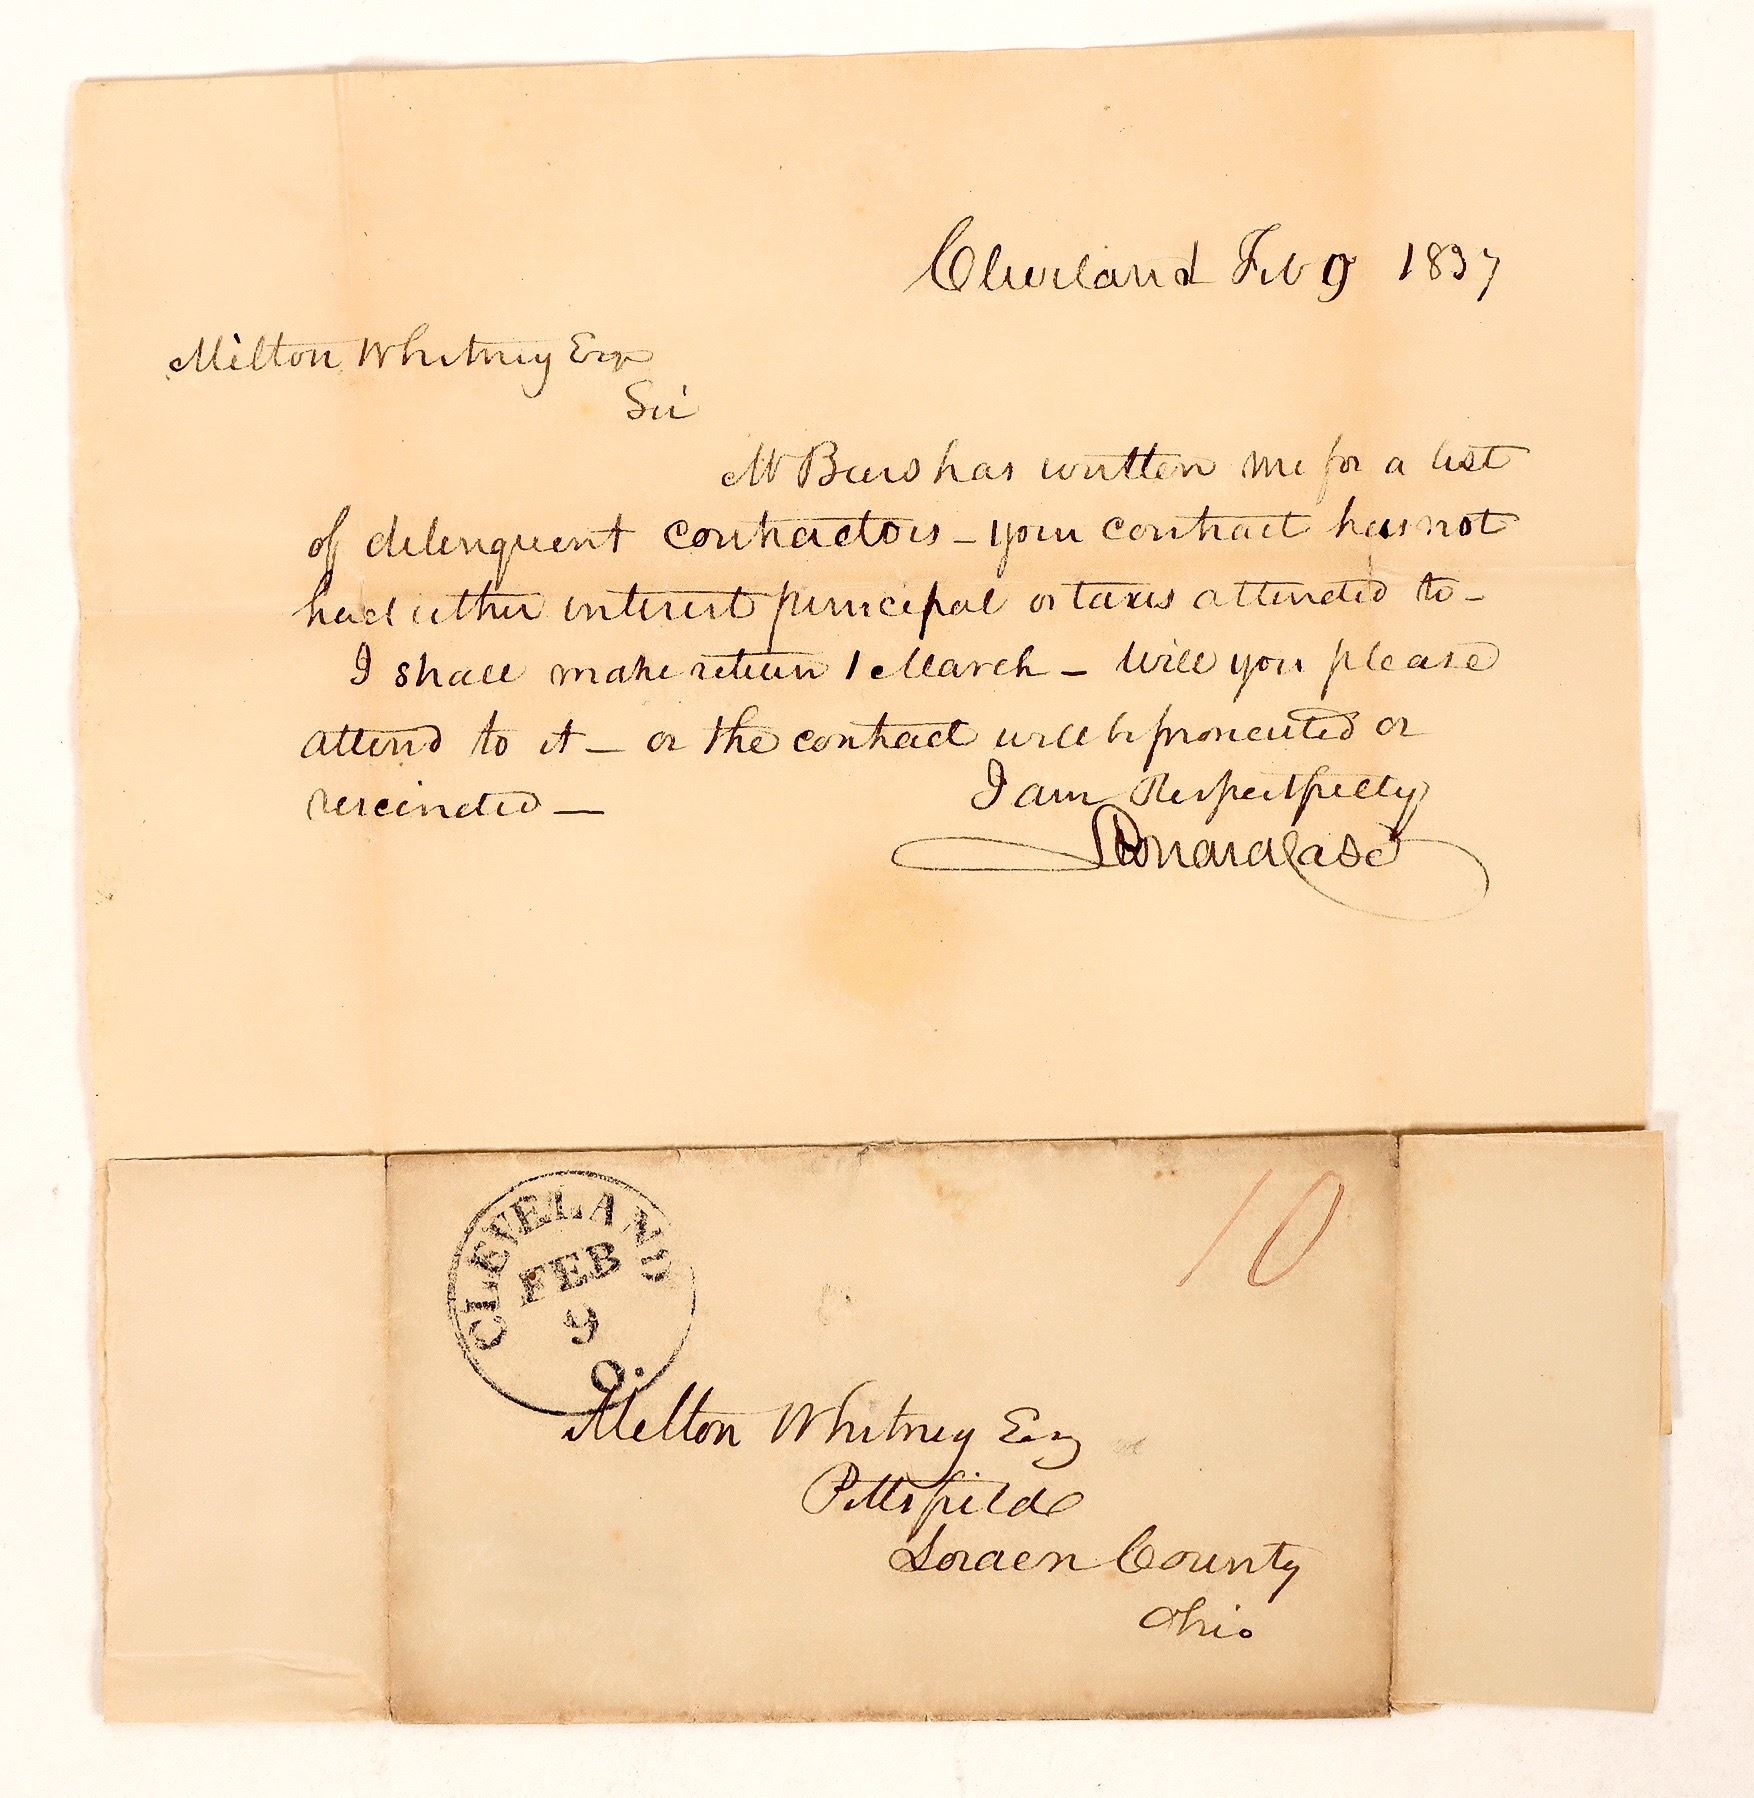 Cleveland Feb 9 1837
Milton Whitney Esqr
Sir
Mr has written me for a list
of delenquent contractors - your contract has not
had either interest principal or taxes attended to -
I shall make return 1 March - Will you please
attend to it - or the contract will be prosecuted or
rescinded -
I am Respectfully
Leonard Case
CLEVELAND
FEB
9
O.
10
Milton Whitney Esq
Pittsfield
Loraen County
Ohio